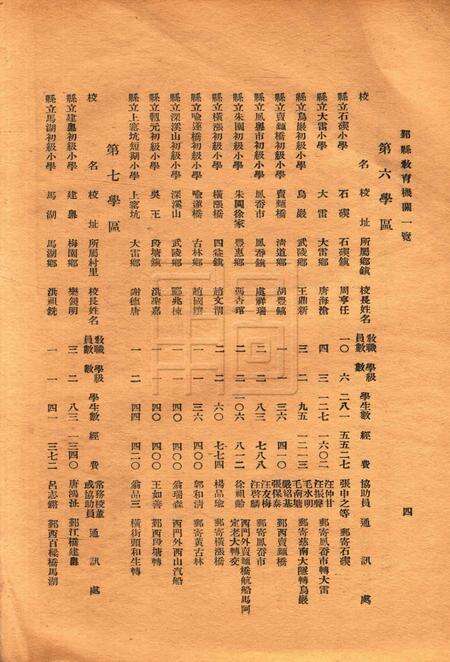 鄞縣教育機關一覽
四
第六學區
校名 校址 所屬鄉鎮 校長姓名 教職員數 學級數 學生數 經費 協助員 通訊處
縣立石碶小學 石碶 石碶鎮 周學任 一〇 六 二八一 五五二七 張申之等 鄞寄石碶
縣立大雷小學 大雷 大雷鄉 唐海滄 四 三 一二七 一六〇二 汪仲甘 汪振聲 鄞寄鳳岙市轉大雷
縣立烏巖初級小學 烏巖 武陵鄉 王鼎新 三 二 九五 一二一三 毛水明 毛南塘 鄞寄慈南大隱轉烏巖
縣立賣麵橋初級小學 賣麵橋 清道鄉 胡豐鎬 一 一 三六 四一〇 嚴紹基 張保泰 西門外賣麵橋
縣立鳳岙市初級小學 鳳岙市 鳳岙鎮 盧祥瑞 二 八三 七八八 汪友梅 汪啓麟 鄞寄鳳岙市
縣立朱園初級小學 朱園徐家 豐惠鄉 馮杏琯 二 二 一〇六 八一二 徐祖齡 西門外賣麵橋航船馬阿定老大轉交
縣立橫漲初級小學 橫漲橋 四益鎮 趙文渭 二 二 六〇 七七四 楊品瑜 鄞寄橫漲橋
縣立喻蓬橋初級小學 喻蓬橋 古林鄉 趙國讓 一 一 三六 四〇〇 郭和清 鄞寄黃古林
縣立深溪山初級小學 深溪山 武陵鄉 鄭兆棟 一 一 四〇 四〇〇 翁瑞森 西門外西山汽船
縣立翹元初級小學 吳王 段塘鎮 洪聖嘉 一 一 四〇 四〇〇 王如香 鄞西段塘轉
縣立上窰坑短期小學 上窰坑 大雷鄉 謝德唐 一 一 四四 四二〇 翁品三 橫街頭和生轉
第七學區
校名 校址 所屬村里 校長姓名 教職員數 學級數 學生數 經費 常務校董或協助員 通訊處
縣立建嶴初級小學 建嶴 梅園鄉 樂劍明 三 二 八三 一三四〇 唐鴻祉 鄞江橋建嶴
縣立馬湖初級小學 馬湖 馬湖鄉 洪祖銑 一 一 四一 三七二 呂志鏘 鄞西百樑橋馬湖